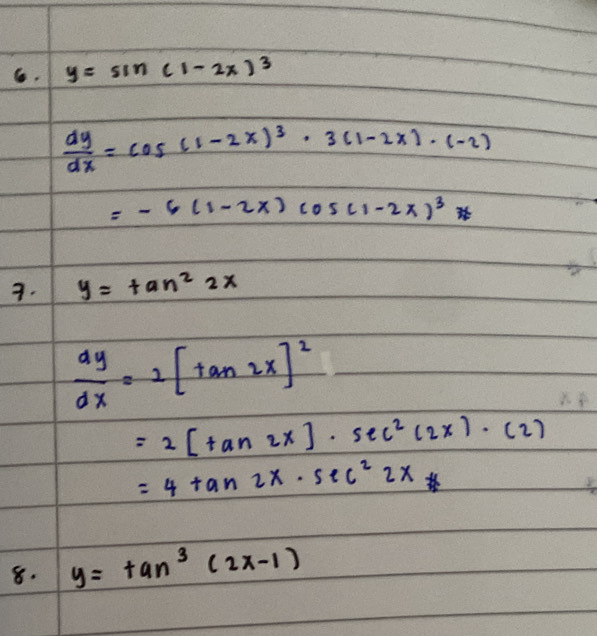 6. y = sin (1-2x)³
dy/dx = cos (1-2x)³ · 3(1-2x) · (-2)
= -6 (1-2x) cos(1-2x)³ #
7. y = tan² 2x
dy/dx = 2 [tan 2x]²
= 2 [tan 2x] · sec² (2x) · (2)
= 4 tan 2x · sec² 2x #
8. y = tan³ (2x-1)